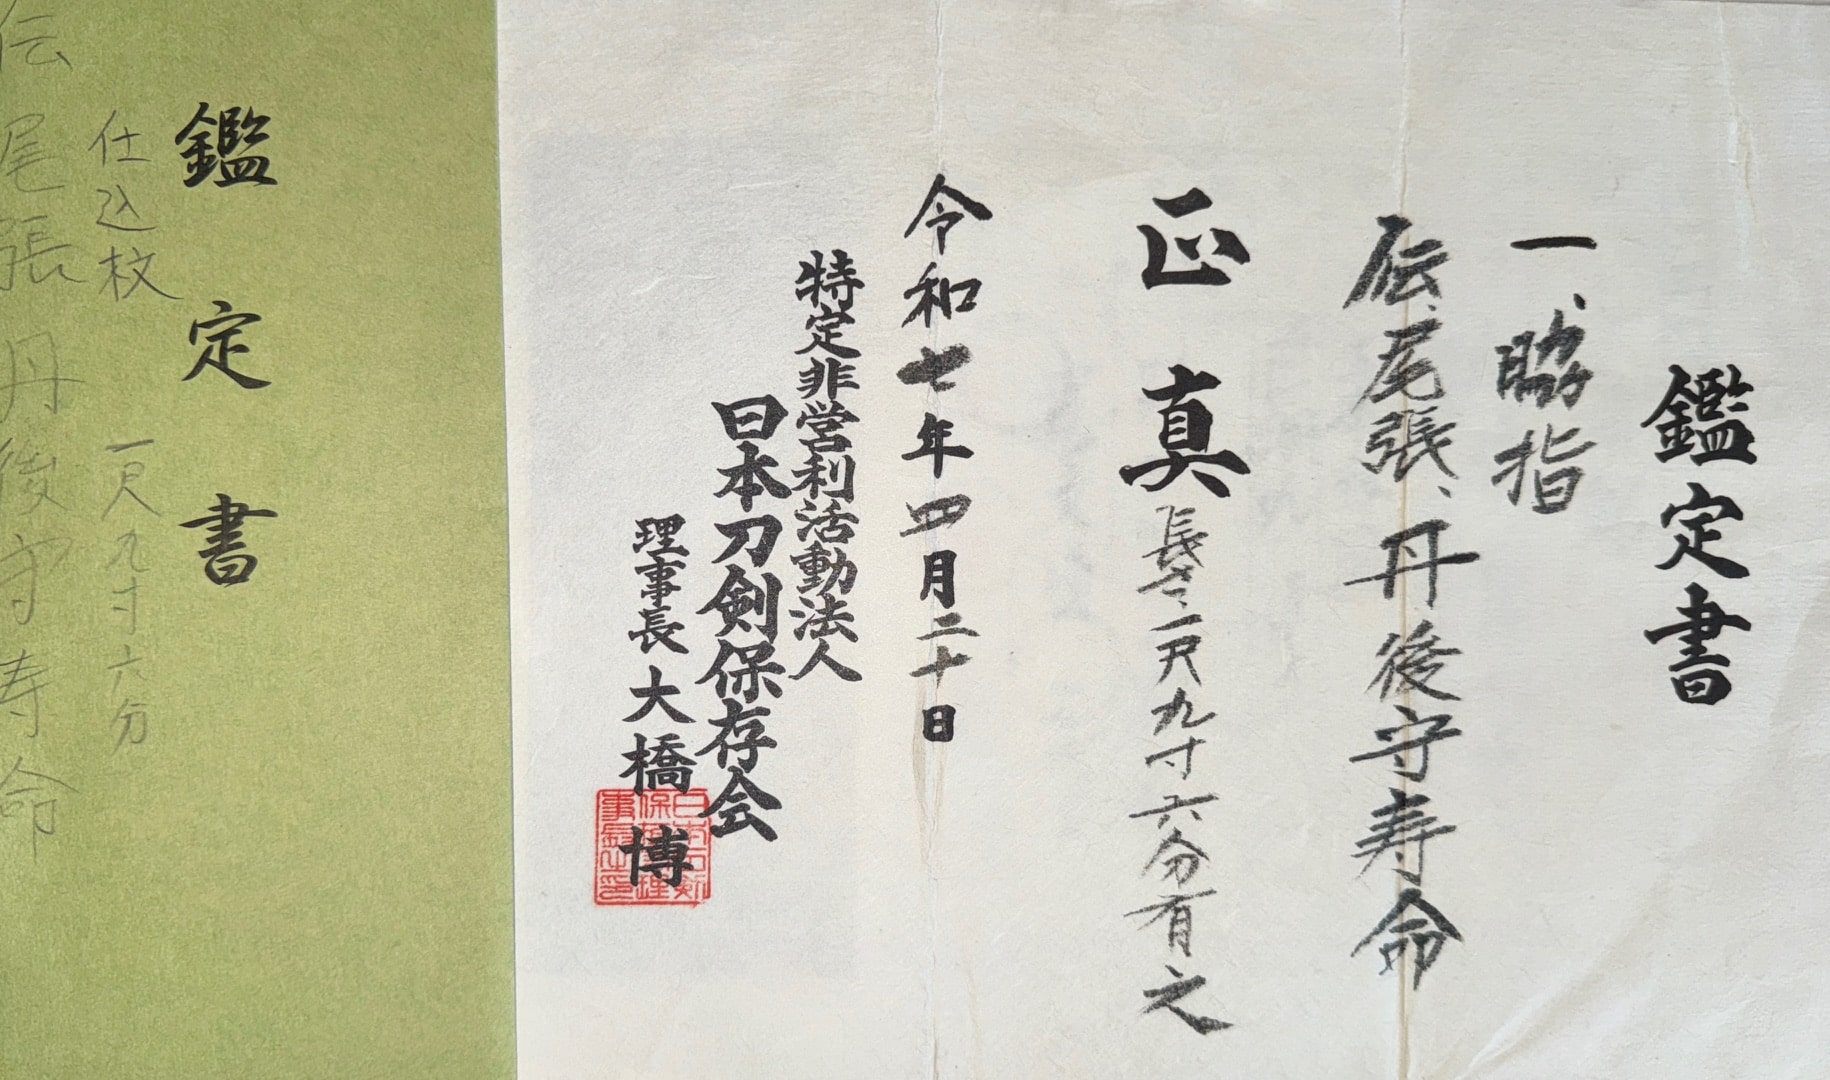 鑑定書
一、脇指
伝、尾張、丹後守寿命
正真
長さ、一尺九寸六分有之
令和七年四月二十日
特定非営利活動法人
日本刀剣保存会
理事長 大橋 博
鑑定書
仕込杖 一尺九寸六分
伝尾張丹後守寿命